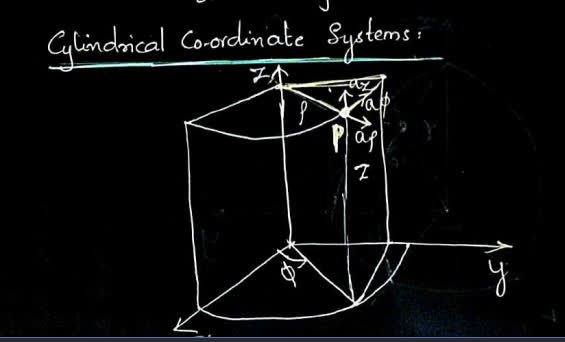 Cylindrical Co-ordinate Systems:
z
az
aφ
ρ
P
aρ
z
φ
y